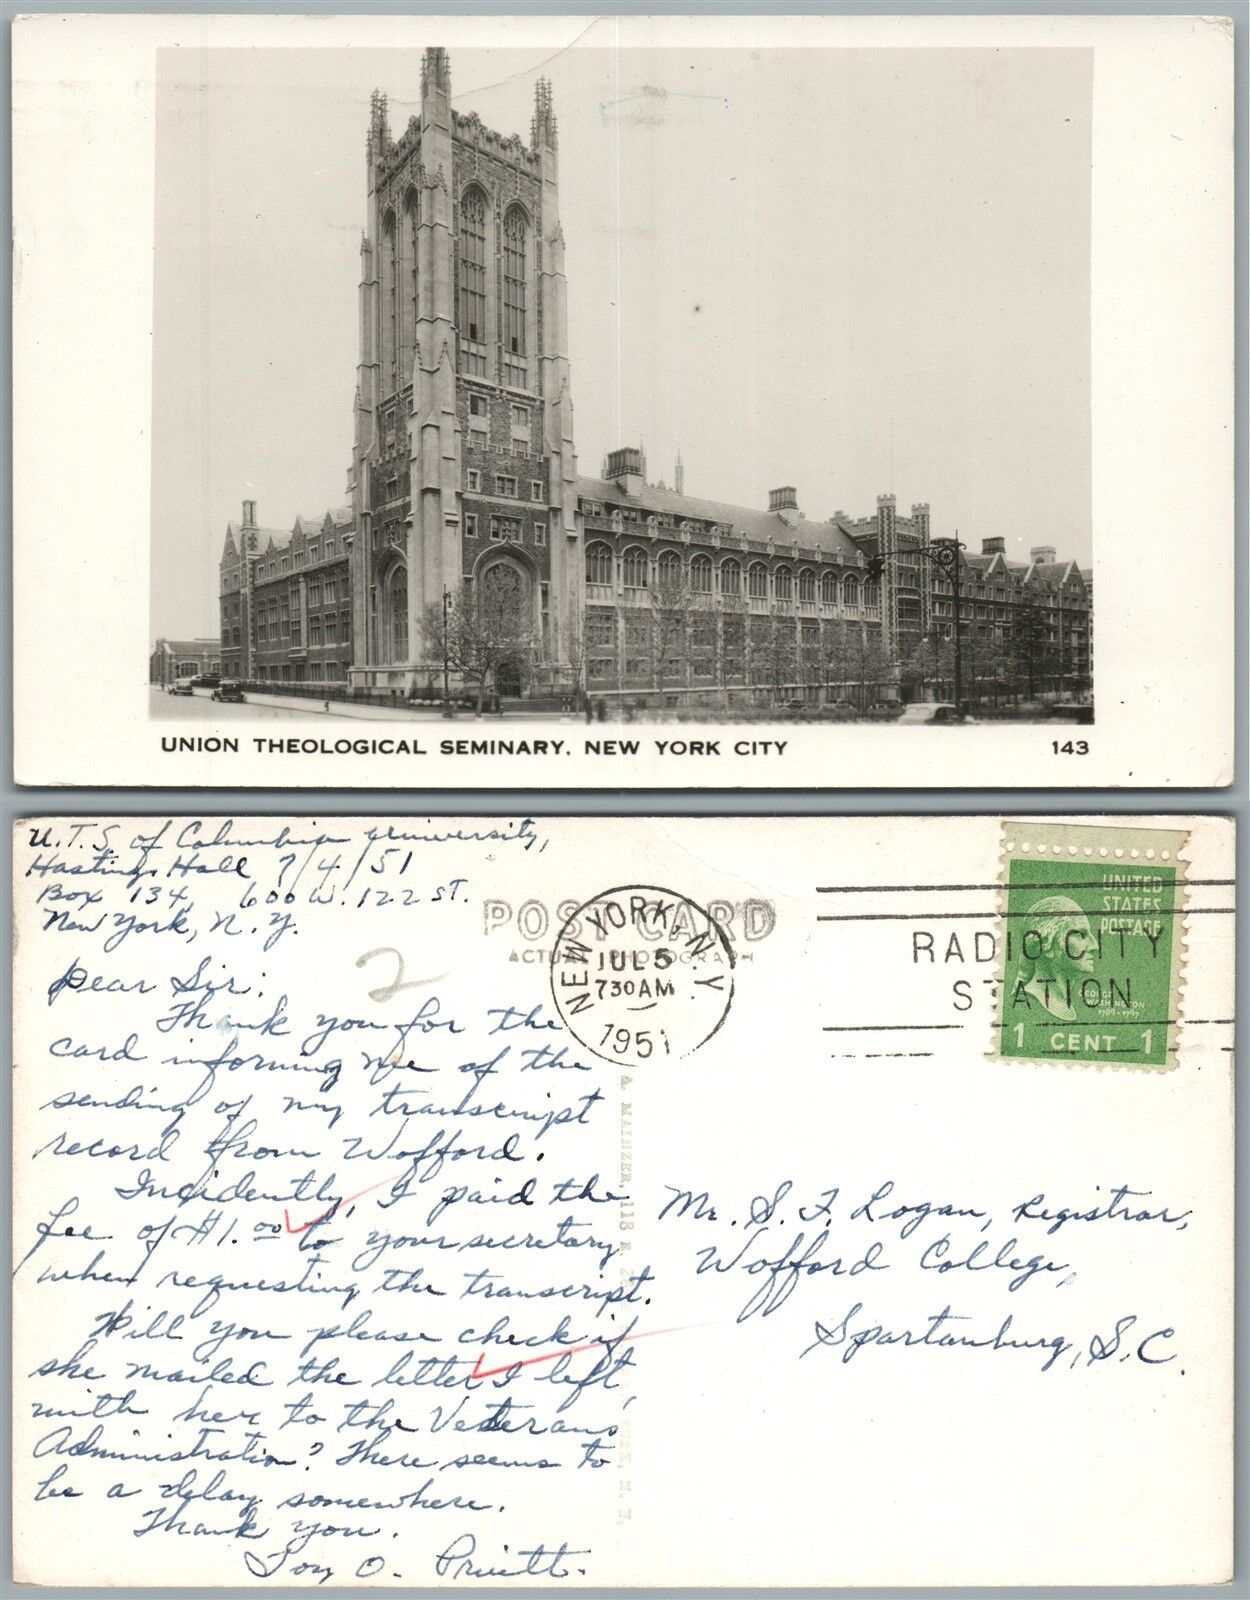 UNION THEOLOGICAL SEMINARY, NEW YORK CITY 143
U.T.S. of Columbia University,
Hastings Hall 7/4/51
Box 134, 600 W. 122 ST.
New York, N.Y.
2
Dear Sir:
Thank you for the
card informing me of the
sending of my transcript
record from Wofford.
Incidently, I paid the
fee of $1.00 to your secretary
when requesting the transcript.
Will you please check if
she mailed the letter I left
with her to the Veterans
Administration? There seems to
be a delay somewhere.
Thank you.
O. Pruitt.
POST CARD
ACTUAL PHOTOGRAPH
NEW YORK, N.Y.
JUL 5
730 AM
1951
RADIO CITY
STATION
UNITED
STATES
POSTAGE
GEORGE
WASHINGTON
1789-1797
1 CENT 1
A. MAINZER, 118 E.
Mr. S. F. Logan, Registrar,
Wofford College,
Spartanburg, S.C.